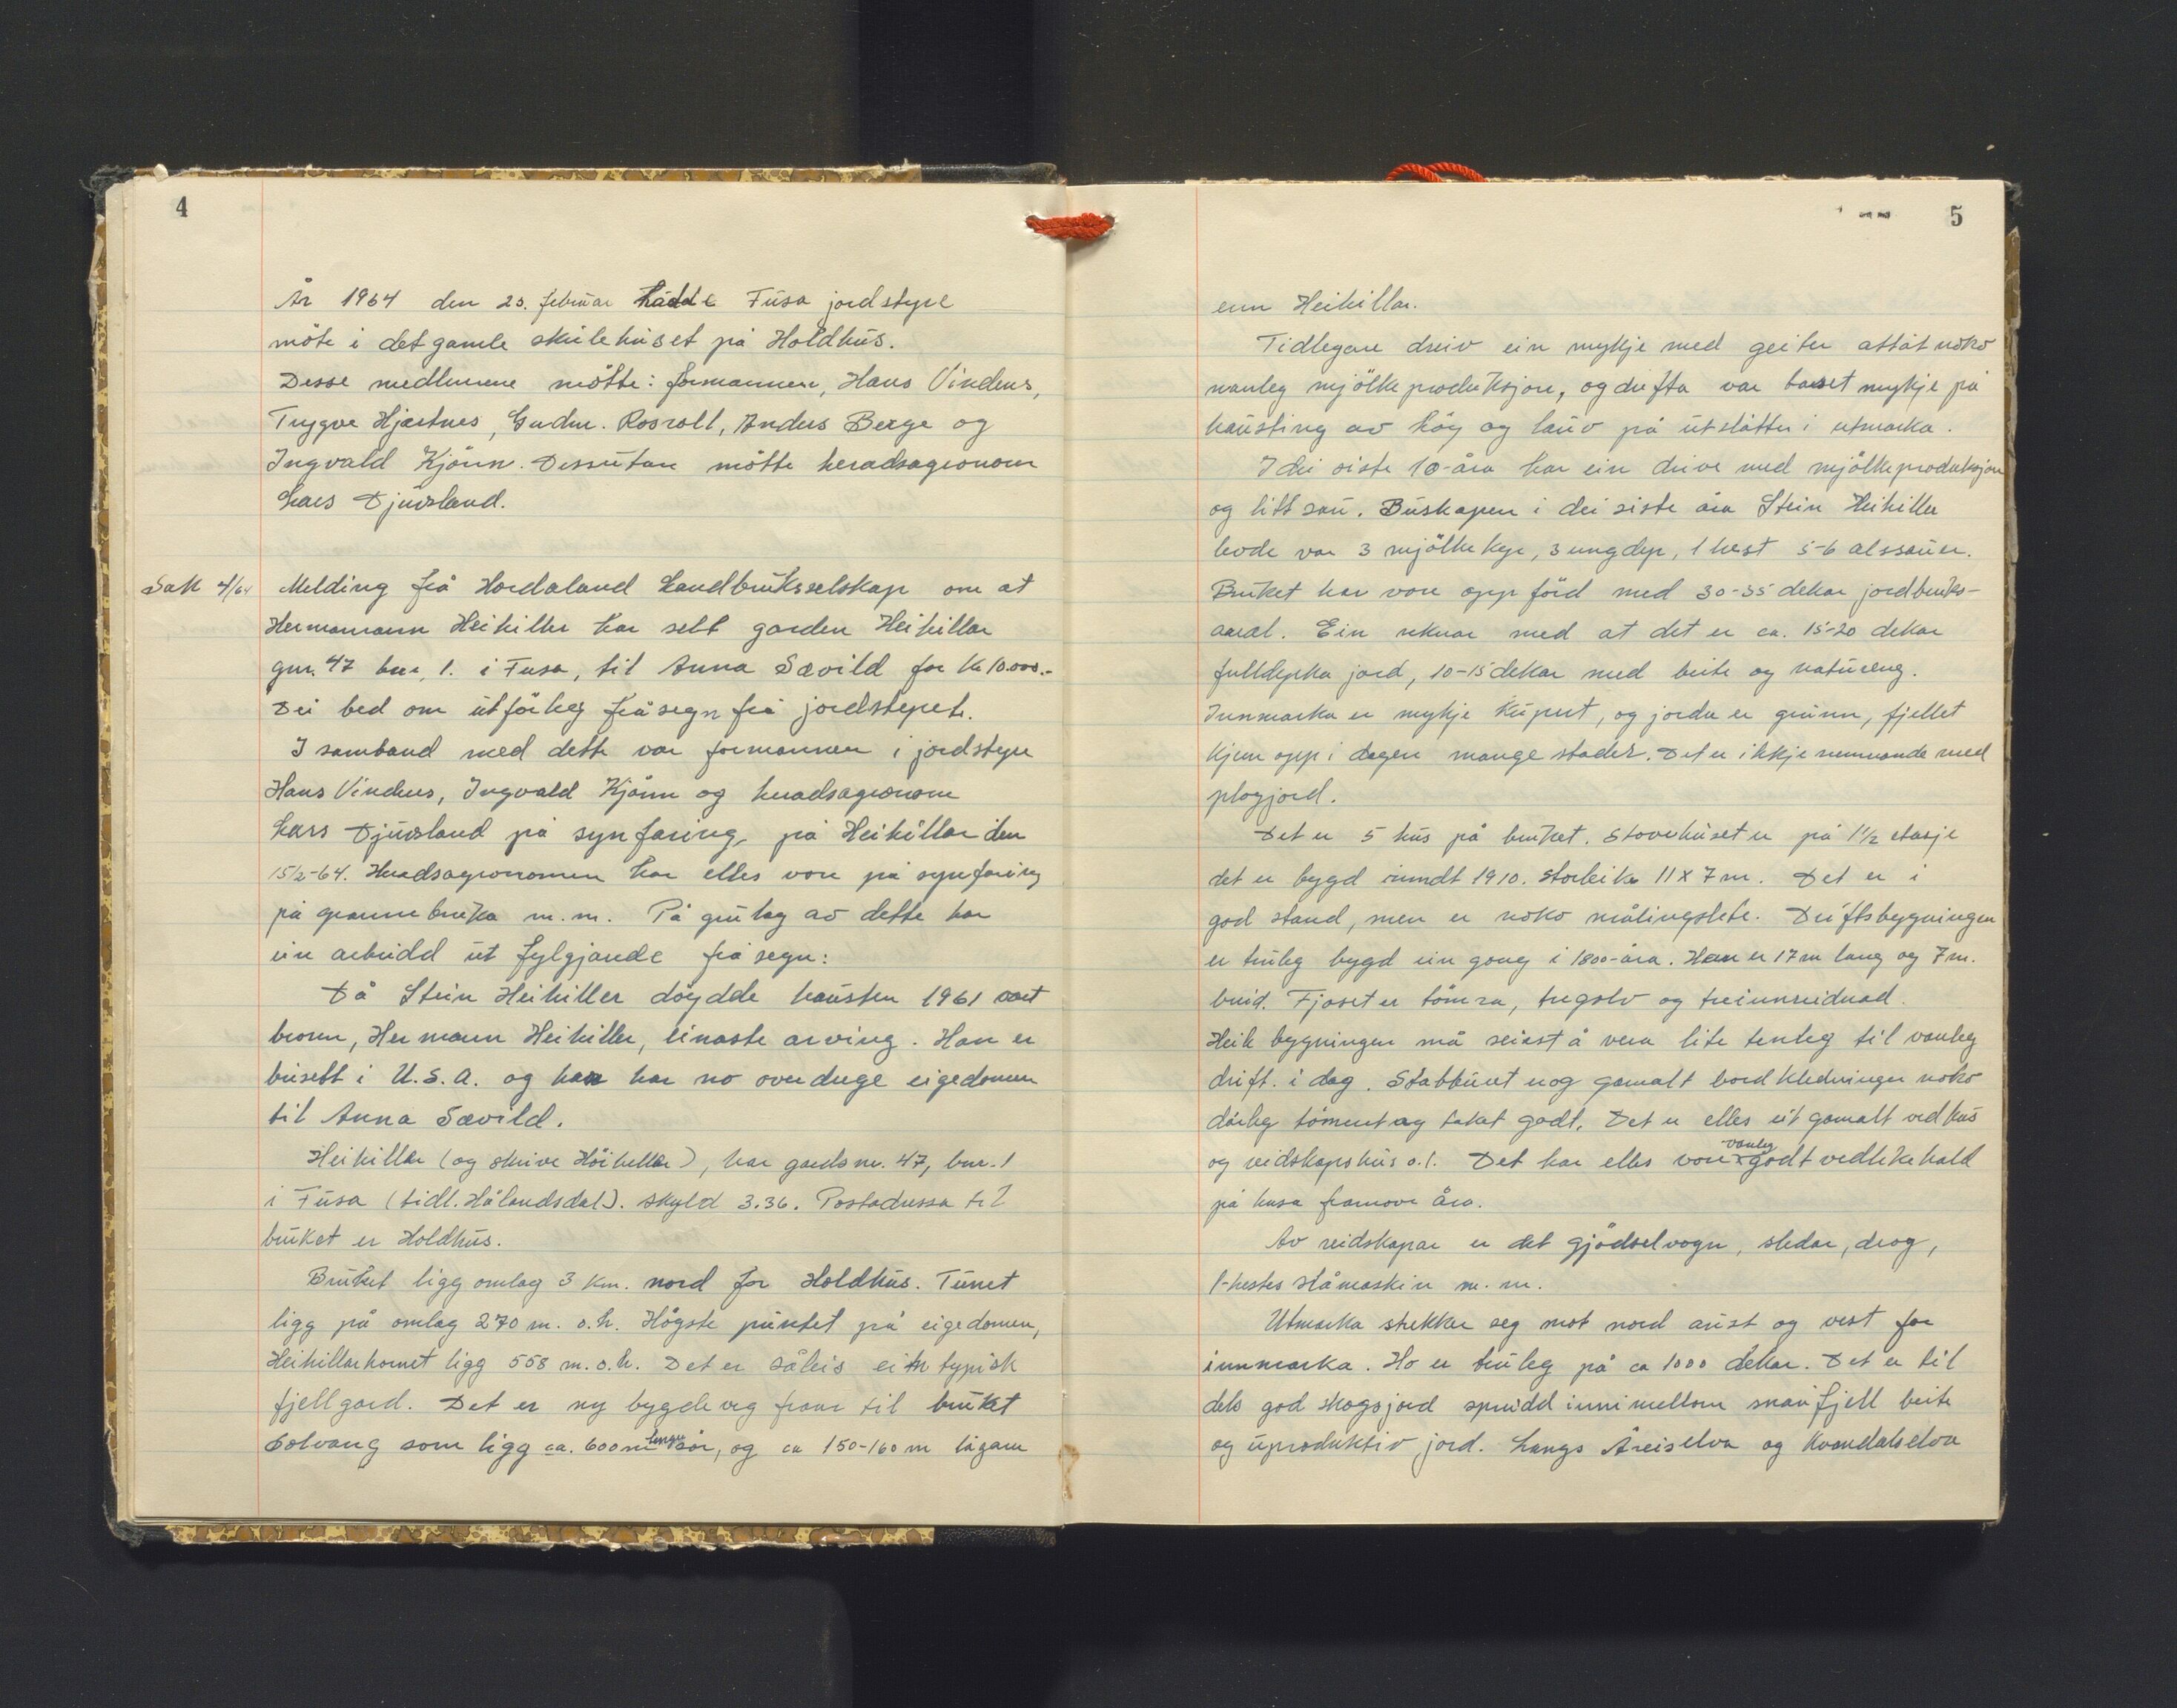 4
År 1964 den 25. februar hadde Fusa jordstyre
möte i det gamle skulehuset på Holdhus.
Desse medlemene mötte: formannen, Hans Vindnes,
Trygve Hjartnes, Gudm. Rosvoll, Anders Berge og
Ingvald Kjönn. Dessutan mötte heradsagronom
Lars Djuvsland.
Sak 4/64 Melding frå Hordaland Landbruksselskap om at
Hermamann Heikiller har selt garden Heikillar
gnr. 47 bnr, 1. i Fusa, til Anna Sævild for kr 10.000.-
Dei bed om utförleg fråsegn frå jordstyret.
I samband med dette var formannen i jordstyre
Hans Vindnes, Ingvald Kjönn og heradsagronom
Lars Djuvsland på synfaring, på Heikillar den
15/2-64. Heradsagronomen har elles vore på synfaring
på grannebruka m.m. På grulag av dette har
ein arbeidd ut fylgjande frå segn:
Då Stein Heikiller döydde hausten 1961 vart
broren, Hermann Heikiller, einaste arving. Han er
busett i U.S.A. og han har no overdrege eigedomen
til Anna Sævild.
Heikillar (og skrive Höikellar), har gardsnr. 47, bnr. 1
i Fusa (tidl. Hålandsdal). skyld 3.36. Postadressa til
bruket er Holdhus.
Bruket ligg omlag 3 km. nord for Holdhus. Tunet
ligg på omlag 270 m. o.h. Högste punktet på eigedomen,
Heikillarhornet ligg 558 m.o.h. Det er såleis ein typisk
fjellgard. Det er ny bygdeveg fram til bruket
Solvang som ligg ca. 600 m lenger sör, og ca 150-160 m lågare
5
enn Heikillar.
Tidlegare dreiv ein mykje med geiter attåt noko
vanleg mjölkeproduksjon, og drifta var baset mykje på
hausting av höy og lauv på utslåtter i utmarka.
I dei siste 10-åra har ein drive med mjölkeproduksjon
og litt sau. Buskapen i dei siste åra Stein Heikiller
levde var 3 mjölkekyr, 3 ungdyr, 1 hest 5-6 alssauer.
Bruket har vore opp förd med 30-35 dekar jordbruks-
areal. Ein reknar med at det er ca. 15-20 dekar
fulldyrka jord, 10-15 dekar med beite og natureng.
Innmarka er mykje kupert, og jorda er grunn, fjellet
kjem opp i dagen mange stader. Det er ikkje nemnande med
plogjord.
Det er 5 hus på bruket. Stovehuset er på 1 1/2 etasje
det er bygd rundt 1910. storleik 11 x 7 m. Det er i
god stand, men er noko målingslete. Driftsbygningen
er truleg bygd ein gong i 1800-åra. Han er 17 m lang og 7 m.
breid. Fjoset er tömra, tregolv og treinnreidnad.
Heile bygningen må seiast å vera lite tenleg til vanleg
drift. i dag. Stabburet er og gamalt bordkledningen noko
dårleg tömmeret og taket godt. Det er elles eit gamalt vedhus
og reidskapshus o.l. Det har elles vore vanleg godt vedlikehald
på husa framover åra.
Av reidskapar er det gjödselvogn, sledar, drog,
1-hestes slåmaskin m. m.
Utmarka strekker seg mot nord aust og vest for
innmarka. Ho er truleg på ca 1000 dekar. Det er til
dels god skogsjord spreidd innimellom snaufjell beite
og uproduktiv jord. Langs Åreiselva og Kvandalselva